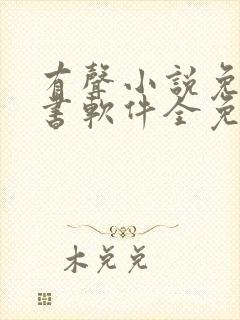 有聲小說免
書軟件全免
木兑兑